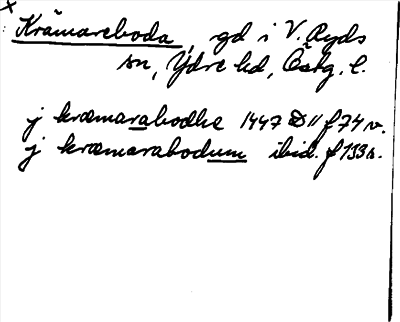 x
Krämareboda, gd i V. Ryds
sn, Ydre hd, Östg. l.
j kræmarabodhe 1447 D 11 f 74 v.
j kræmarabodum ibid. f 133 r.